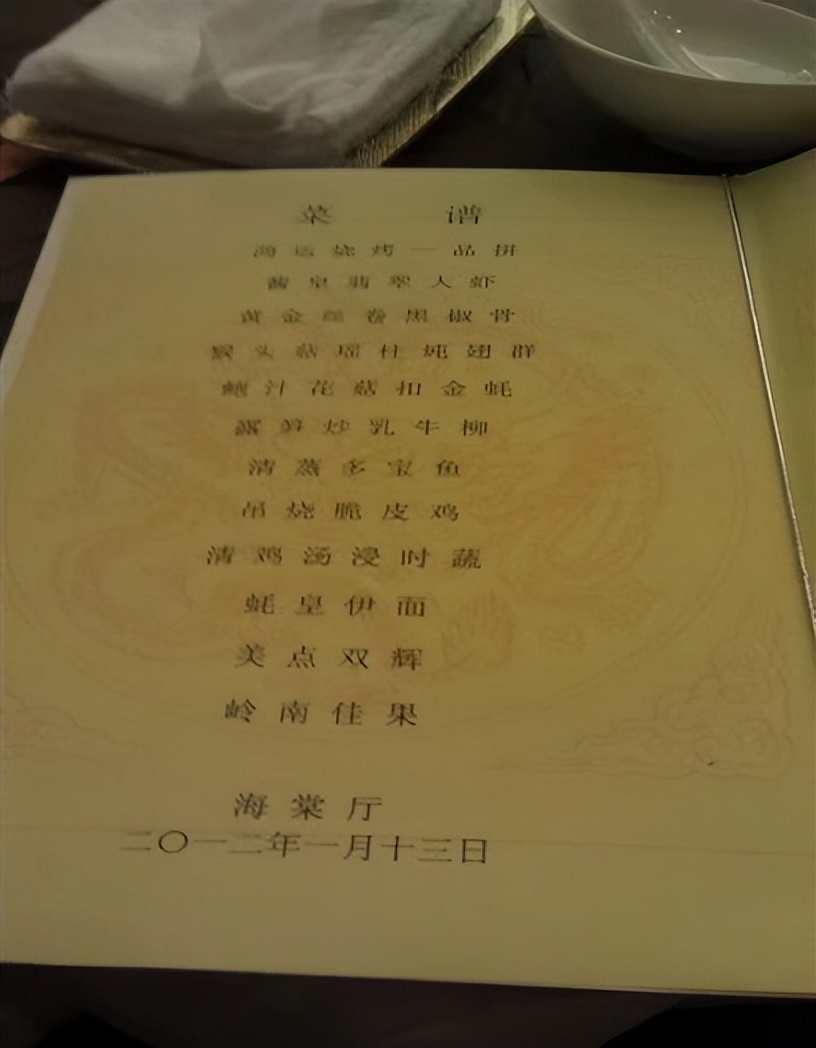 菜 谱
鸿运烧烤一品拼
酱皇翡翠大虾
黄金丝卷黑椒骨
猴头菇瑶柱炖翅群
鲍汁花菇扣金蚝
露笋炒乳牛柳
清蒸多宝鱼
吊烧脆皮鸡
清鸡汤浸时蔬
蚝皇伊面
美点双辉
岭南佳果
海棠厅
二〇一二年一月十三日